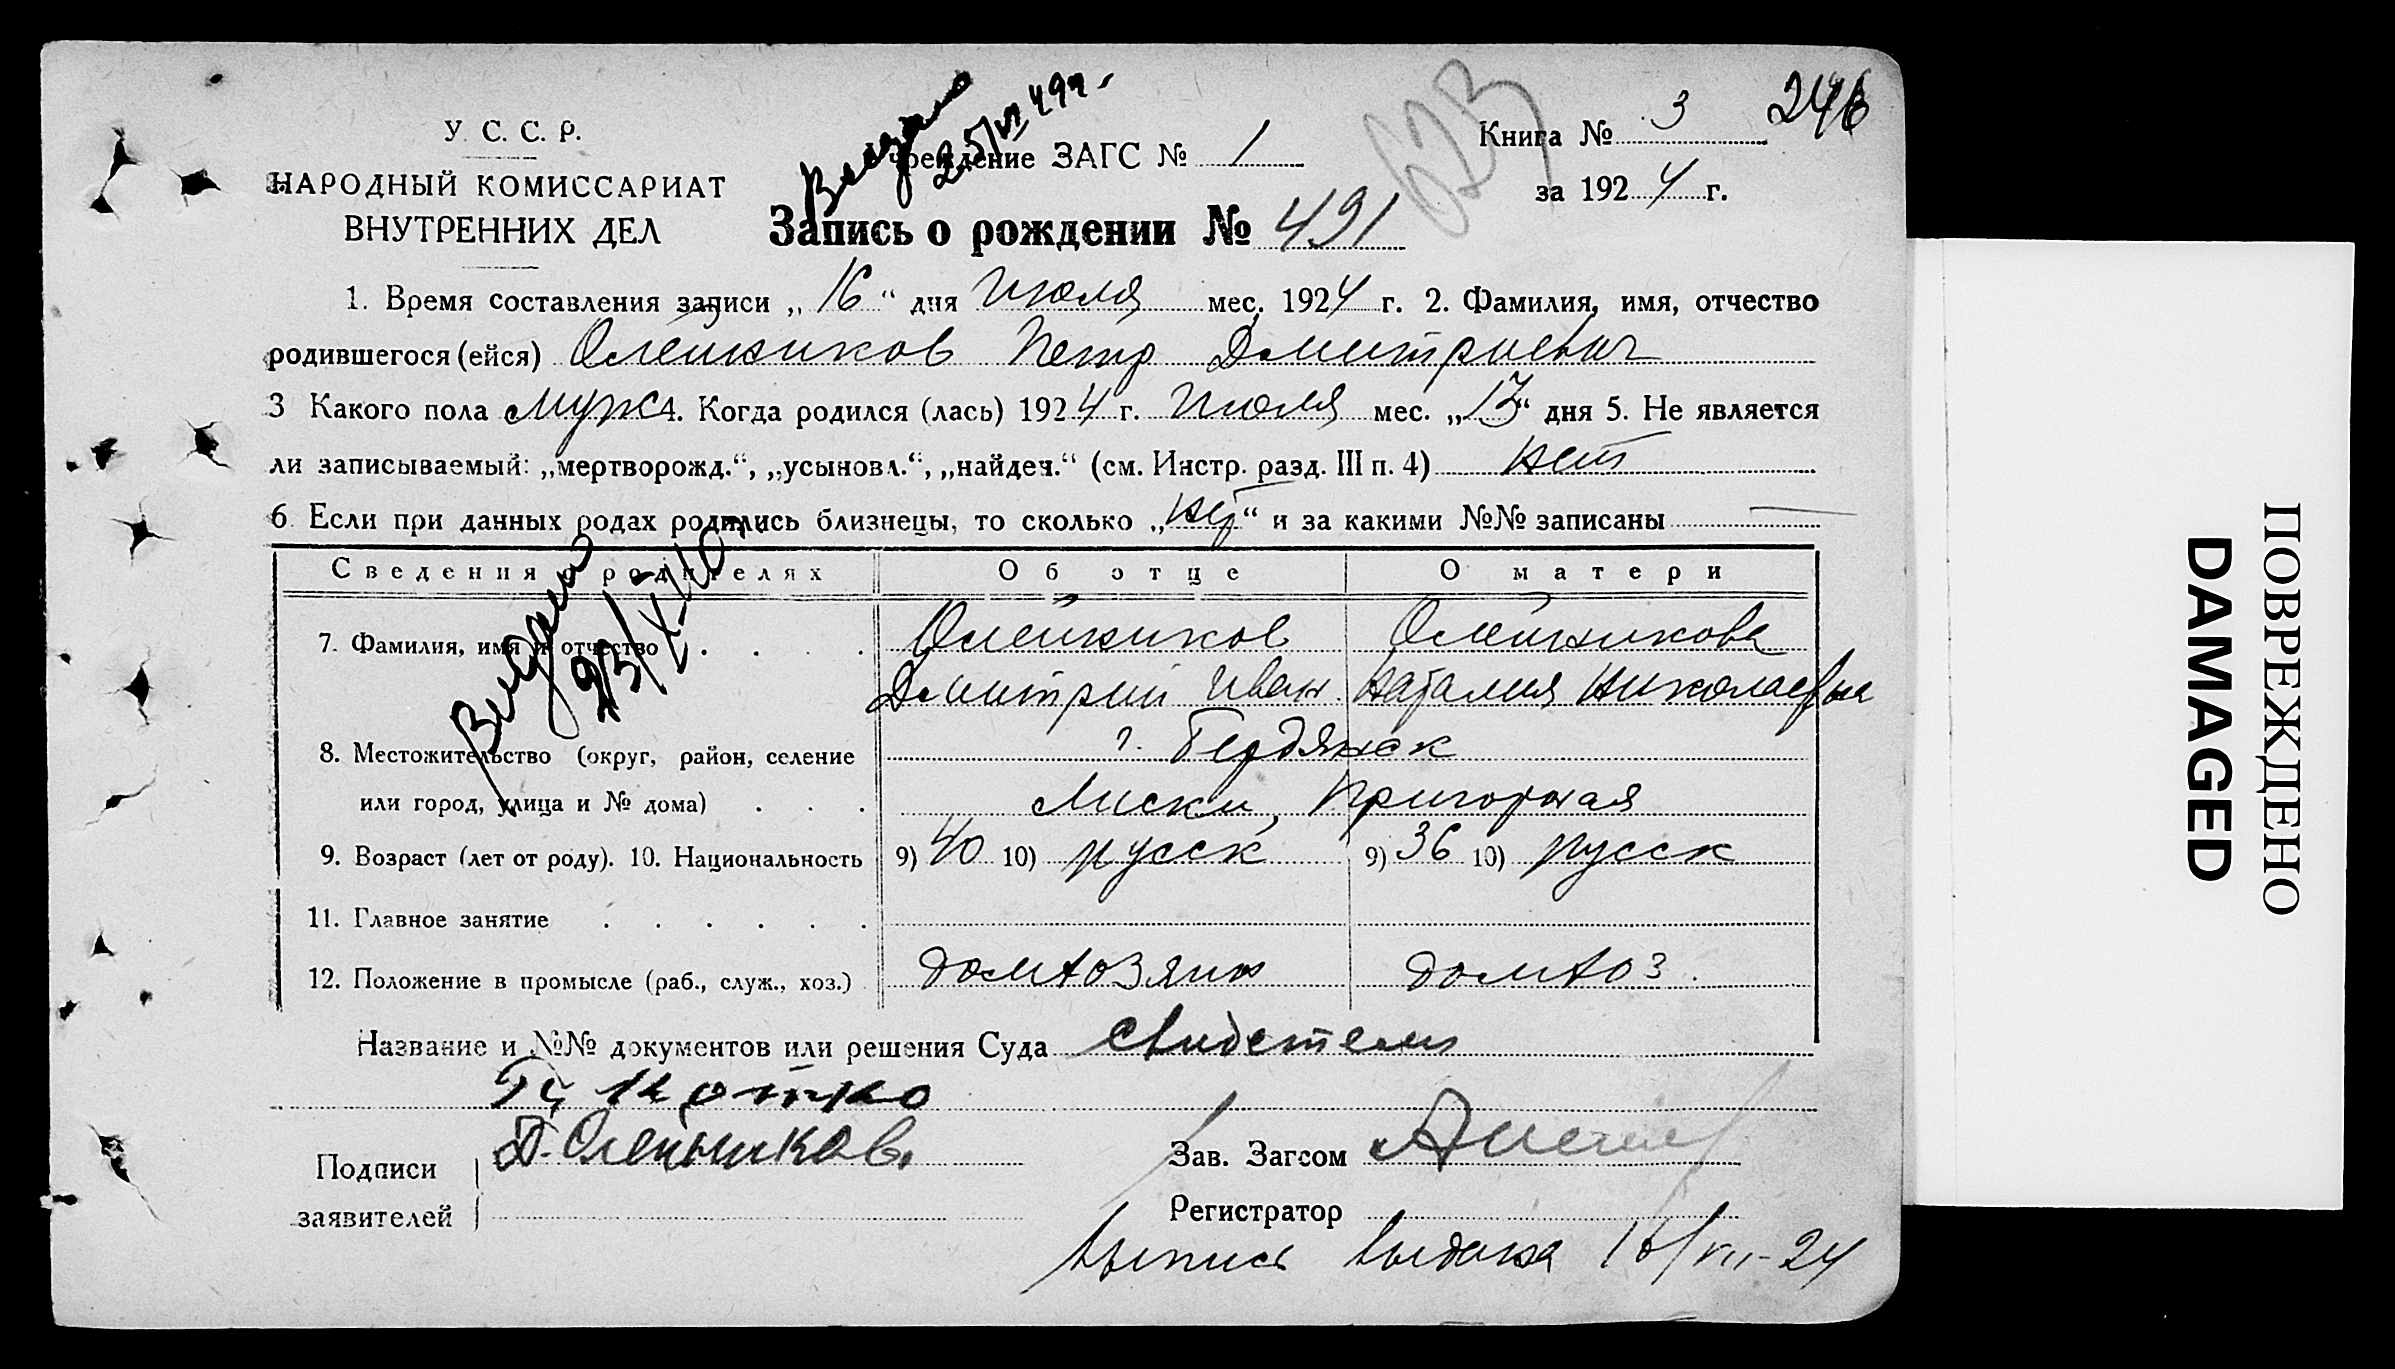 У. С. С. Р.
НАРОДНЫЙ КОМИССАРИАТ
ВНУТРЕННИХ ДЕЛ
Выдано
25/VI 49г.
Учреждение ЗАГС № 1
Книга № 3
246
за 1924 г.
623
Запись о рождении № 491
1. Время составления записи „16“ дня Июля мес. 1924 г. 2. Фамилия, имя, отчество
родившегося (ейся) Олейников Петр Дмитриевич
3 Какого пола муж 4. Когда родился (лась) 1924 г. Июля мес. „13“ дня 5. Не является
ли записываемый: „мертворожд.“, „усыновл.“, „найден.“ (см. Инстр. разд. III п. 4) нет
6. Если при данных родах родились близнецы, то сколько „нет“ и за какими №№ записаны —
Сведения о родителях Об отце О матери
7. Фамилия, имя и отчество . . . . Олейников Олейникова
Дмитрий Иван. Наталия Николаевна
Выдано
23/X-40г.
8. Местожительство (округ, район, селение г. Бердянск
или город, улица и № дома) . . . Лиски, Пригорная
9. Возраст (лет от роду). 10. Национальность 9) 40 10) русск 9) 36 10) русск
11. Главное занятие . . . . . .
12. Положение в промысле (раб., служ., хоз.) домхозяин домхоз.
Название и №№ документов или решения Суда свидетели
Подписи
заявителей
Д. Олейников.
Зав. Загсом
Регистратор
Выпись выдана 16/VII-24
ПОВРЕЖДЕНО
DAMAGED